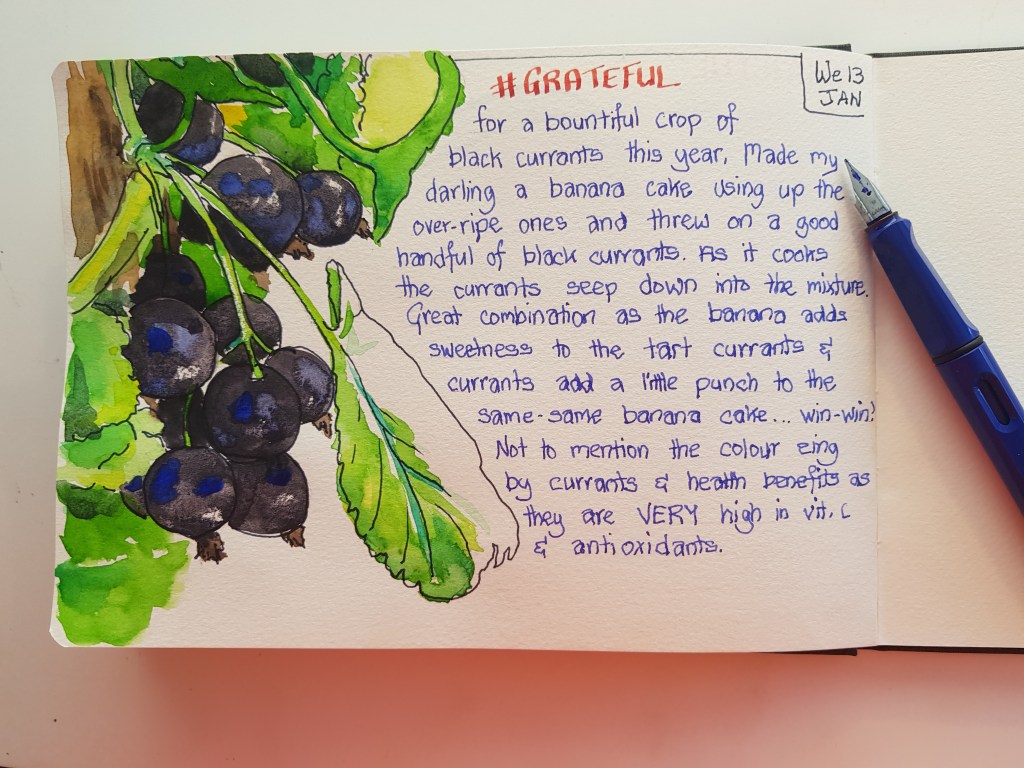 #GRATEFUL
We 13
JAN
for a bountiful crop of
black currants this year. Made my
darling a banana cake using up the
over-ripe ones and threw on a good
handful of black currants. As it cooks
the currants seep down into the mixture.
Great combination as the banana adds
sweetness to the tart currants &
currants add a little punch to the
same-same banana cake... win-win!
Not to mention the colour zing
by currants & health benefits as
they are VERY high in vit. C
& antioxidants.